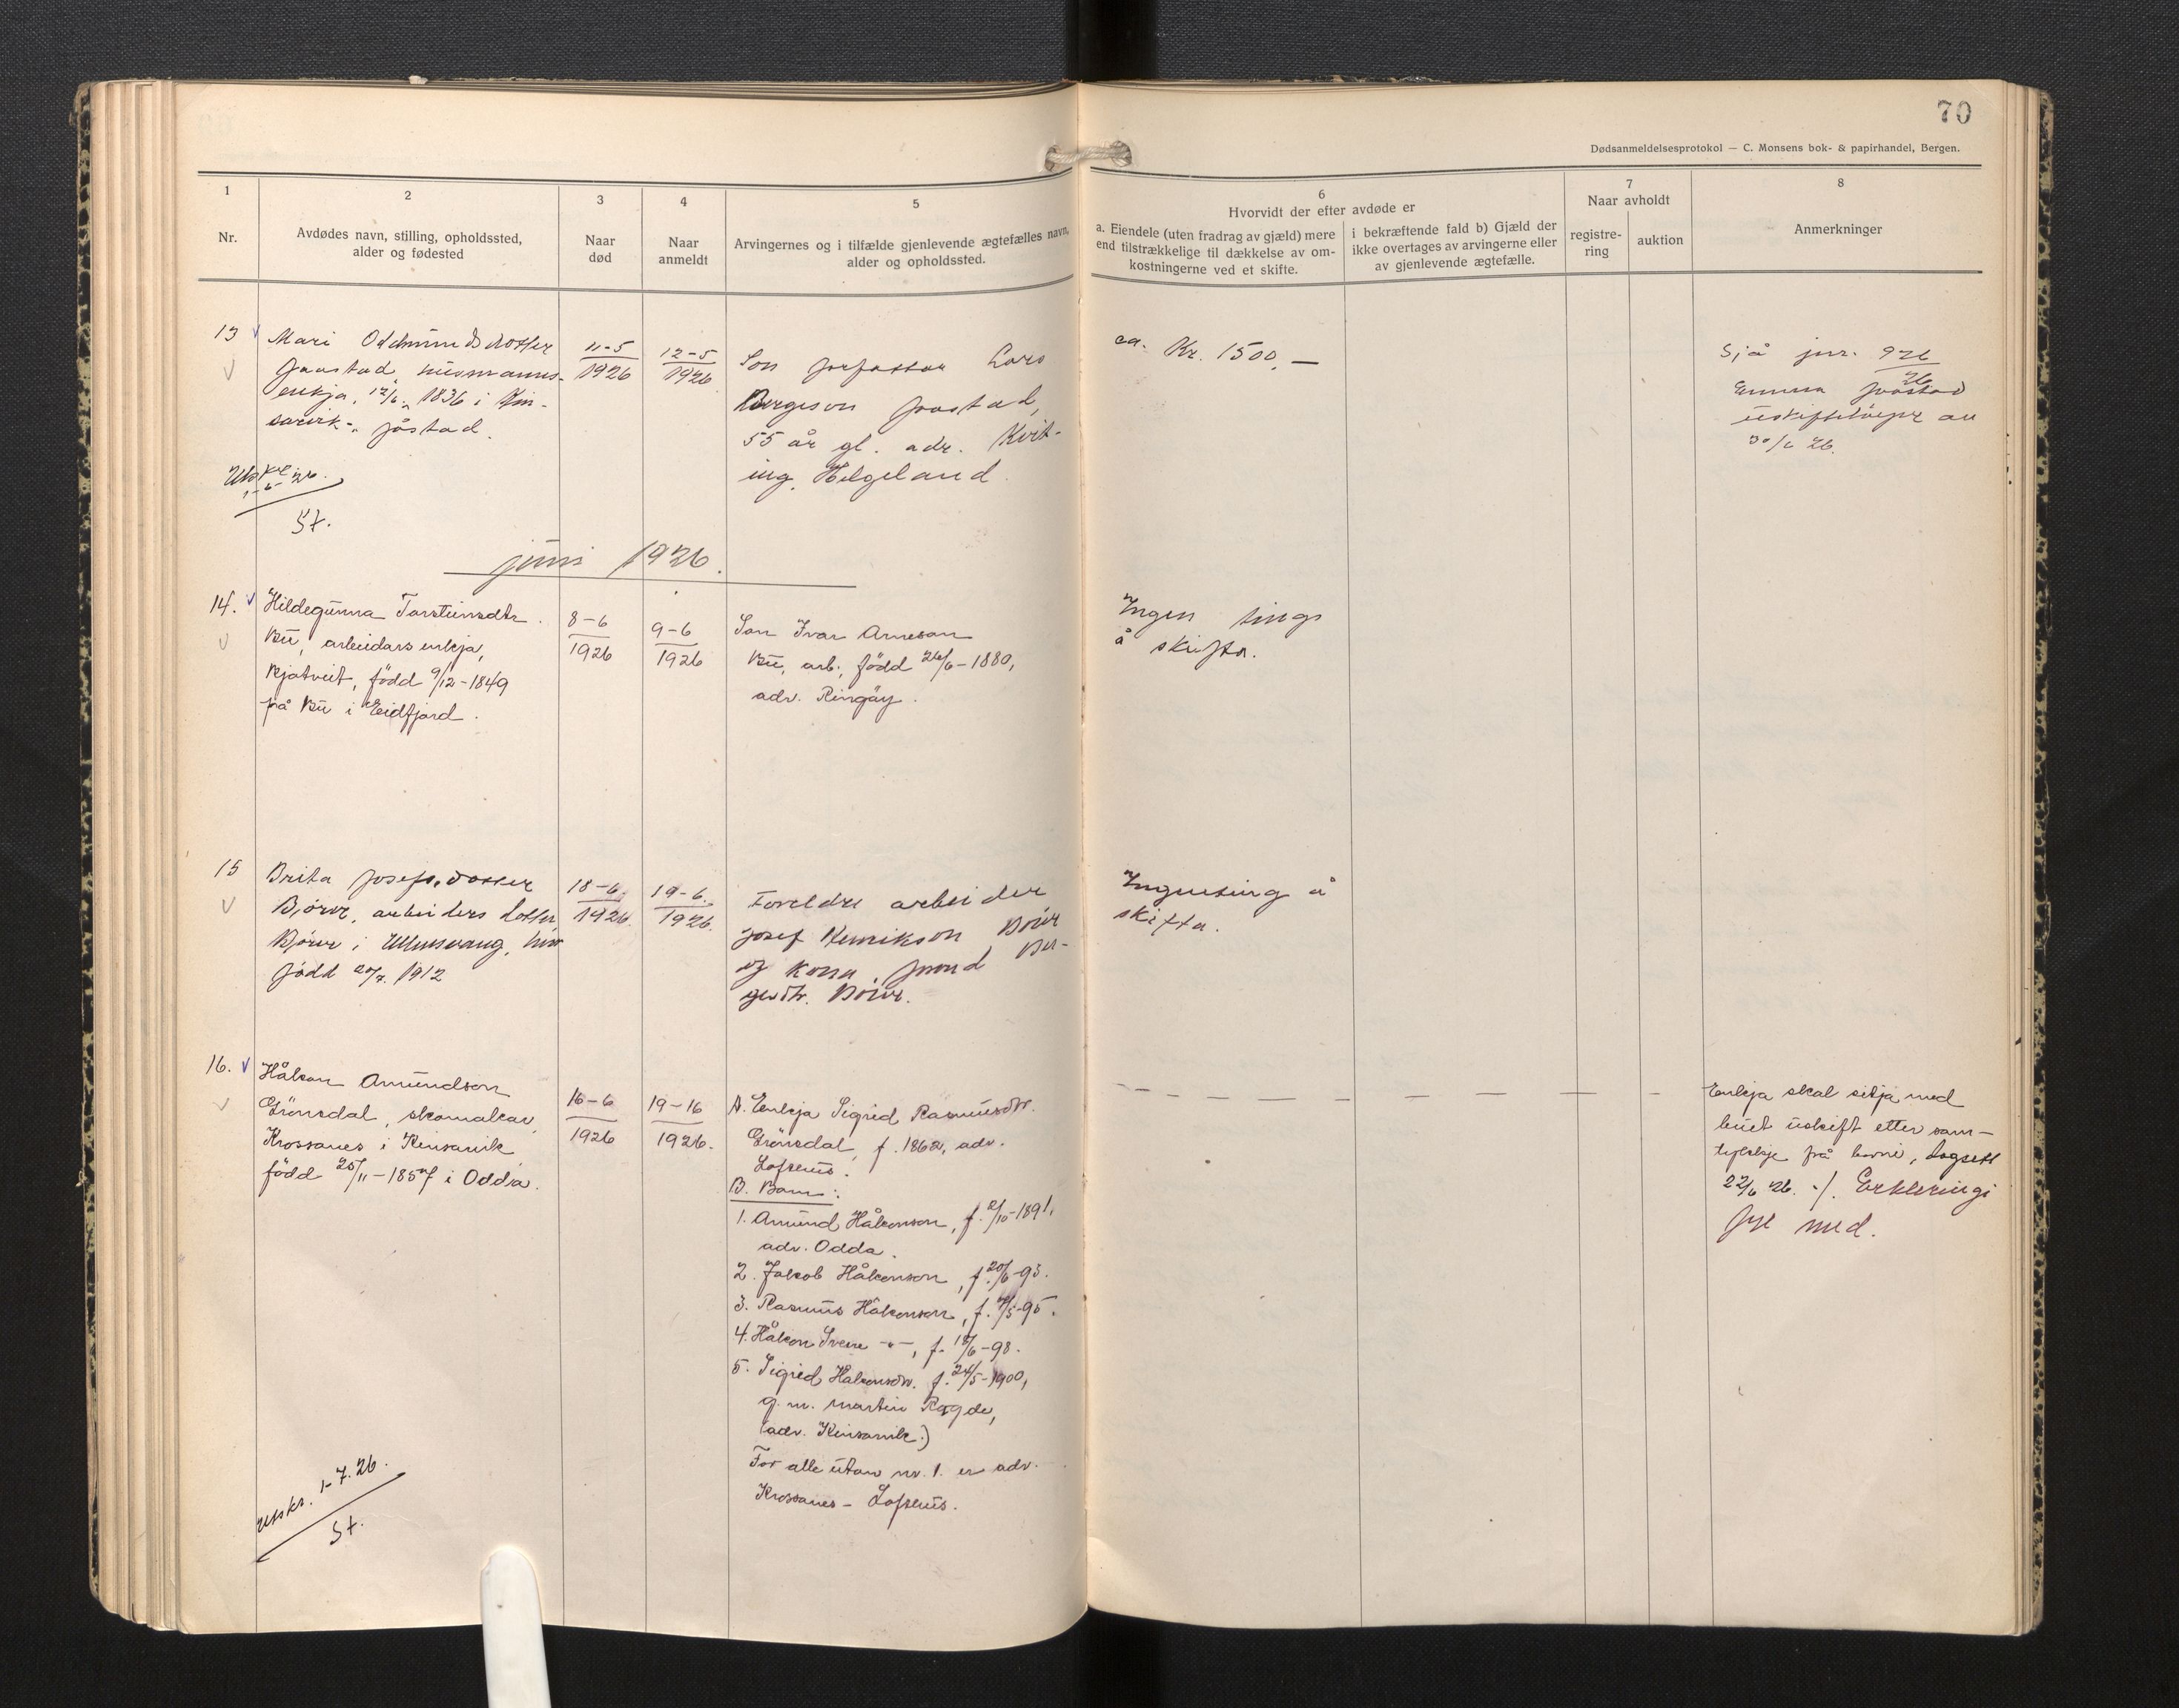 70
Dødsanmeldelsesprotokol — C. Monsens bok- & papirhandel, Bergen.
1
Nr.
2
Avdødes navn, stilling, opholdssted,
alder og fødested
3
Naar
død
4
Naar
anmeldt
5
Arvingernes og i tilfælde gjenlevende ægtefælles navn,
alder og opholdssted.
6
Hvorvidt der efter avdøde er
a. Eiendele (uten fradrag av gjæld) mere
end tilstrækkelige til dækkelse av om-
kostningerne ved et skifte.
i bekræftende fald b) Gjæld der
ikke overtages av arvingerne eller
av gjenlevende ægtefælle.
7
Naar avholdt
registre-
ring
auktion
8
Anmerkninger
13
Mari Oddmundsdotter
Jaastad, husmanns-
enkja, 12/6 1836 i Kin-
sarvik - Jåstad.
11-5
1926
12-5
1926
Son forfattar Lars
Bergeson Jaastad,
55 år gl. adr. Kvit-
ing, Helgeland.
ca. Kr. 1500,—
Sjå jnr. 926
26
Jaastad
30/6 26.
St.
juni 1926.
14.
Hildegunna Torsteinsdtr.
Bu, arbeidars enkja,
Kjotveit, född 9/12-1849
på Bu i Eidfjord.
8-6
1926
9-6
1926
Son Ivar Arneson
Bu, arb., född 26/6-1880,
adr. Ringöy.
Ingen tings
å skifta.
15
Brita Josefsdotter
Börve, arbeiders dotter,
Börve i Ullensvang,
född 20/7. 1912
18-6.
1926.
19-6.
1926.
Foreldre arbeider
Josef Henrikson Börve
og kona Ber-
gesdtr. Börve.
Ingenting å
skifta.
16.
Håkon Amundson
Grönsdal, skomakar,
Krossanes i Kinsarvik,
född 25/11-1857 i Odda.
16-6
1926
19-16
1926.
A. Enkja Sigrid Rasmusdtr.
Grönsdal, f. 1862, adr.
Lofthus.
B. Barn:
1. Amund Håkonson, f. 2/10-1891,
adr. Odda.
2. Jakob Håkonson, f. 20/6-93.
3. Rasmus Håkonson, f. 4/5-95.
4. Håkon Svein -"-, f. 18/6-98.
5. Sigrid Håkonsdtr. f. 24/5-1900,
g. m. Martin Ragde,
(adr. Kinsarvik.)
For alle utan nr. 1. er adr.
Krossanes - Lofthus.
Enkja skal sitja med
buet uskift etter sam-
tykkje frå borni, dagsett
22/6 26. ./. Erkleringi
fyl med.
Utskr. 1-7.26.
St.